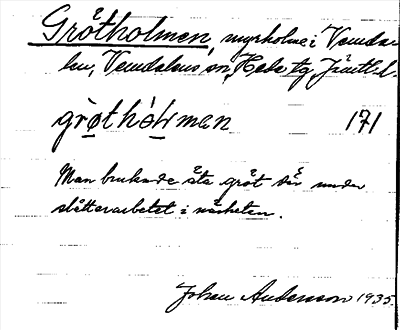 Grötholmen, myrholme i Vemda-
len, Vemdalens sn, Hede tg, Jämtl. l.
grøthól̵man 171
Man brukade äta gröt där under
slåtterarbetet i närheten.
Johan Andersson 1935.